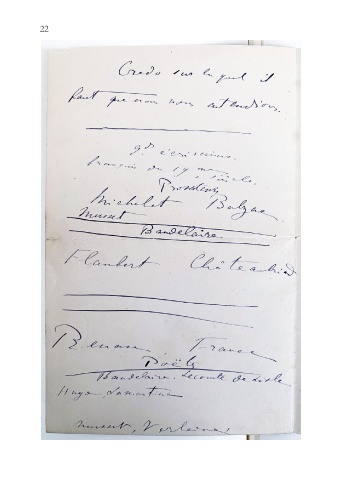 22
Credo sur lequel il
faut que nous nous entendions.
gds écrivains
français du 19me siècle.
Prosateurs
Michelet Balzac
Musset
Baudelaire
Flaubert Châteaubriand
Renan France
Poëtes
Baudelaire. Leconte de Lisle
Hugo, Lamartine
Musset, Verlaine